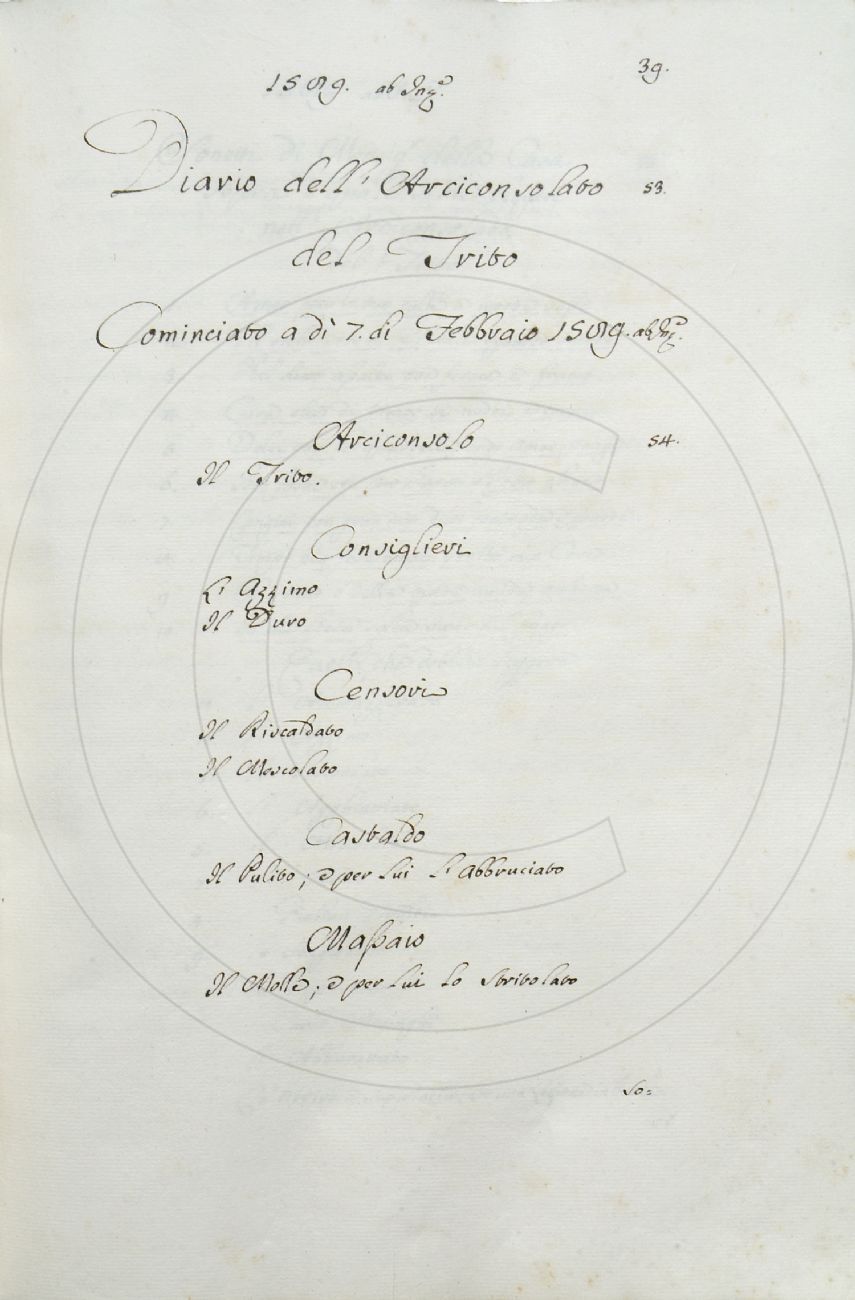 39.
1589. ab Inc.e
Diario dell' Arciconsolato 53.
del Trito
Cominciato a dì 7. di Febbraio 1589. ab Inc.e
Arciconsolo 54.
Il Trito.
Consiglieri
L' Azzimo
Il Duro
Censori
Il Riscaldato
Il Mescolato
Castaldo
Il Pulito; e per lui L' Abbruciato
Massaio
Il Molle; e per lui lo stritolato
So=